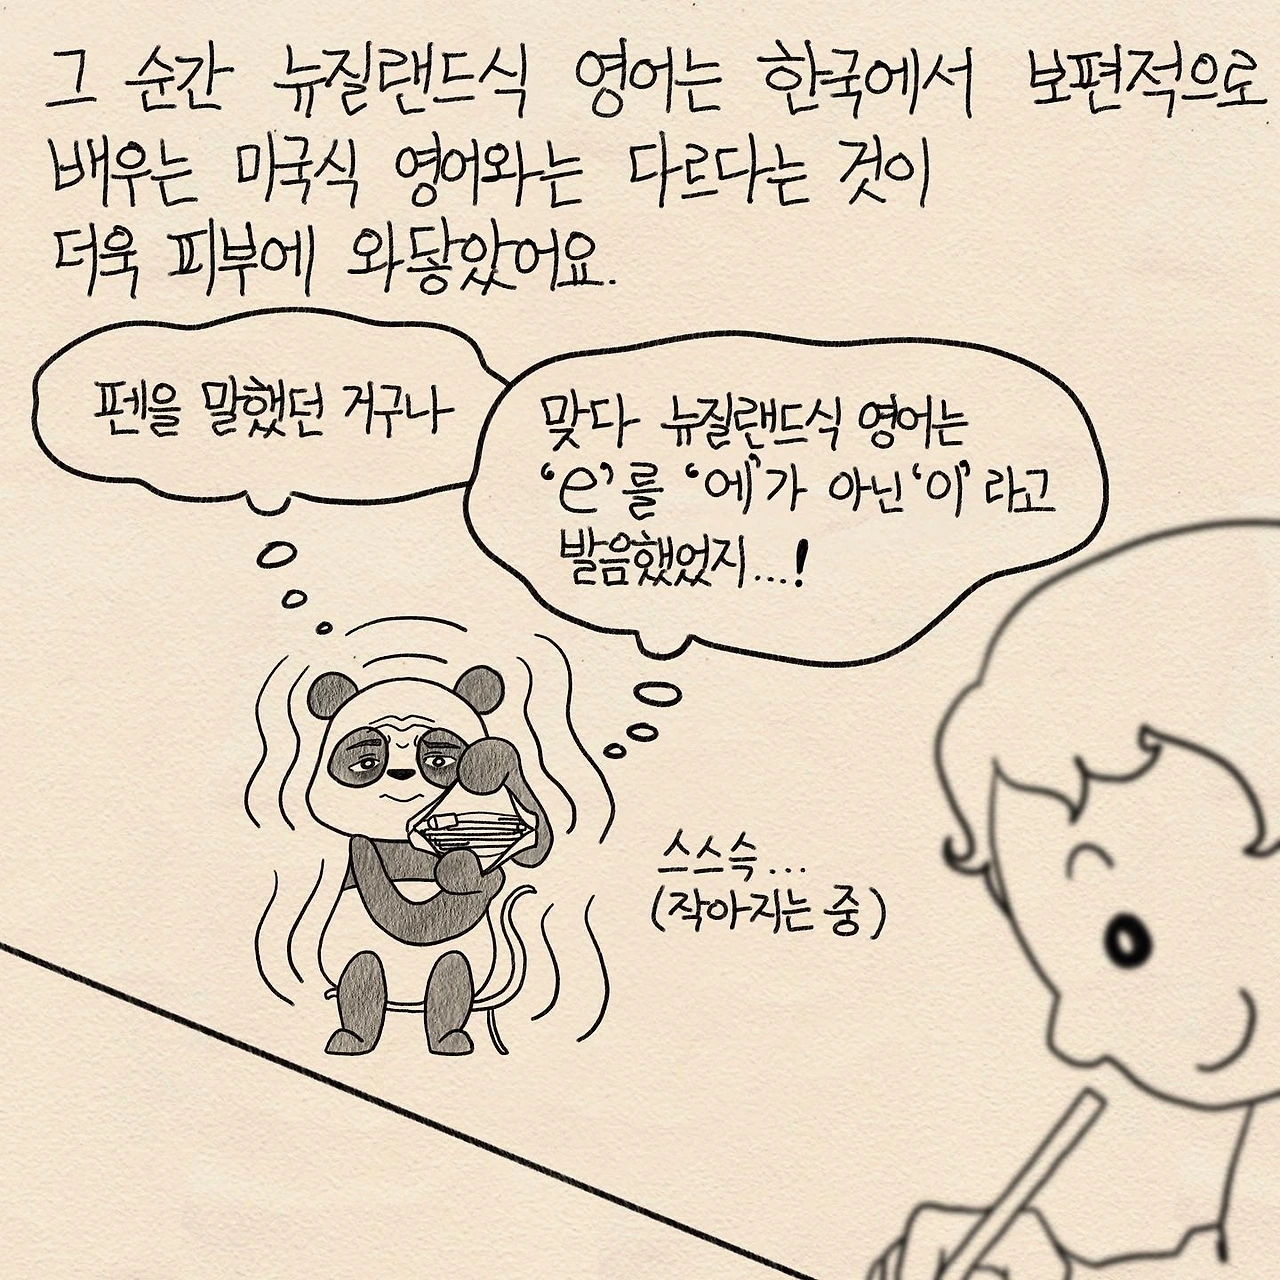 그 순간 뉴질랜드식 영어는 한국에서 보편적으로
배우는 미국식 영어와는 다르다는 것이
더욱 피부에 와닿았어요.
펜을 말했던 거구나
맞다 뉴질랜드식 영어는
'e'를 '에'가 아닌 '이'라고
발음했었지...!
스스슥...
(작아지는 중)